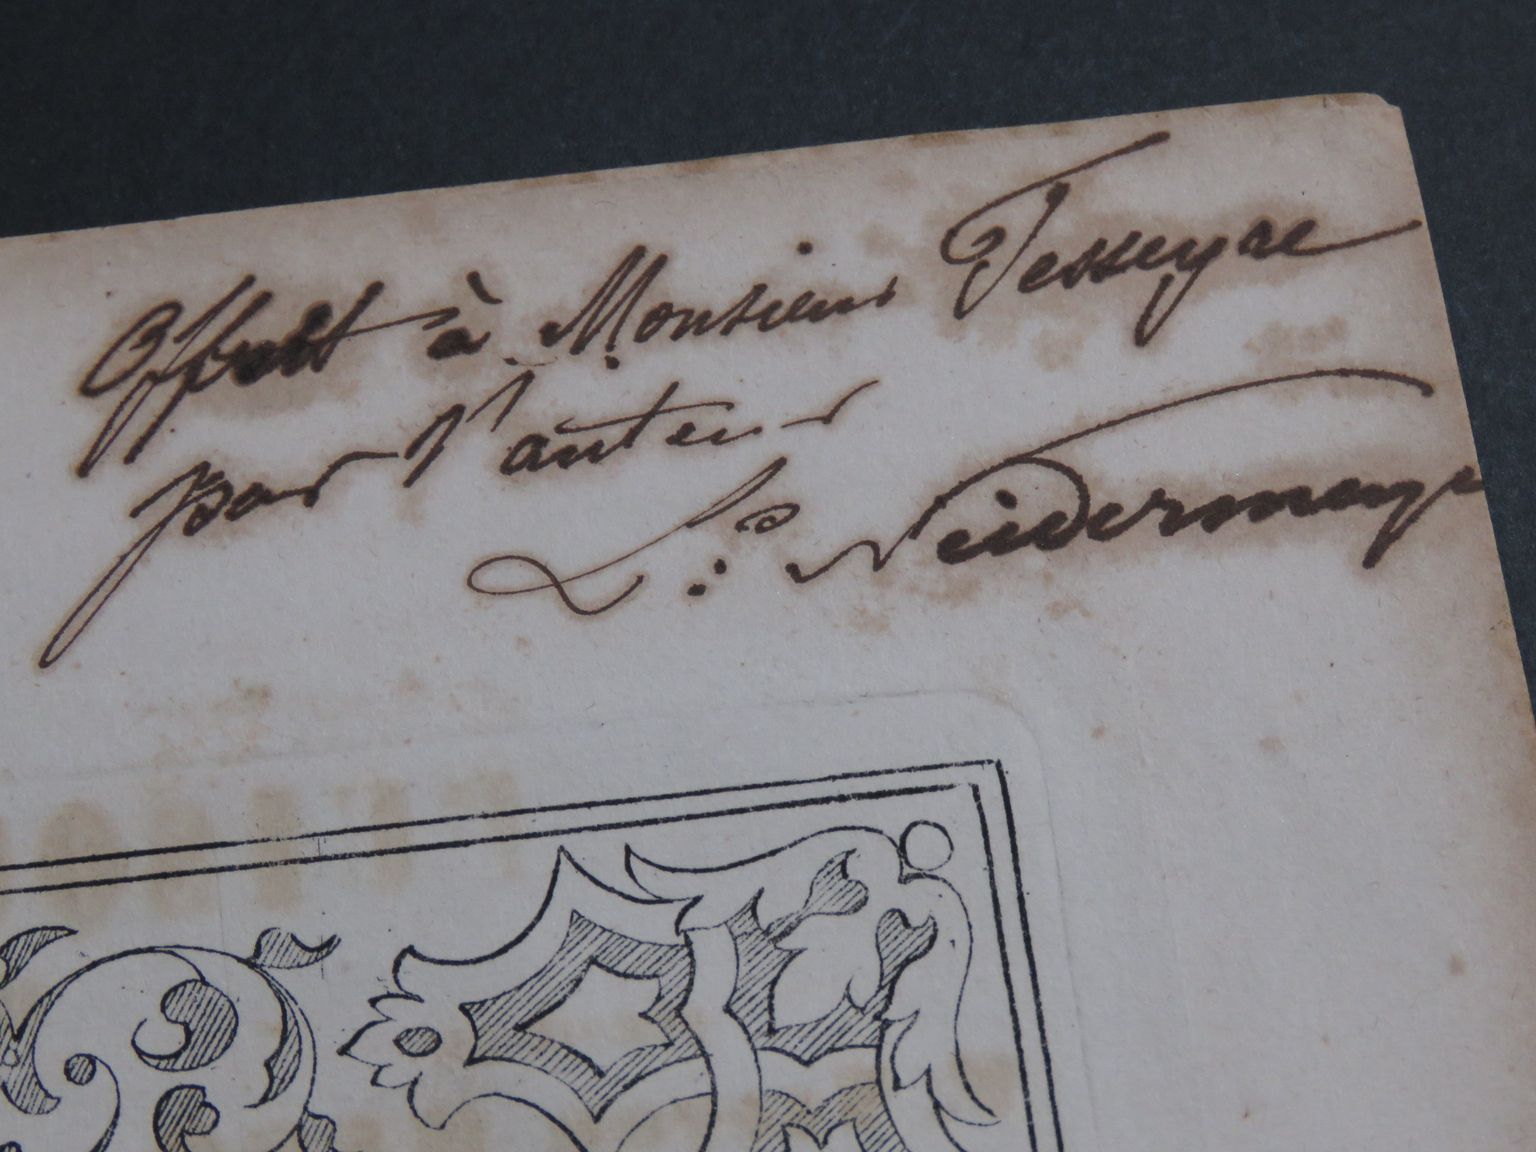 Offert à Monsieur Tesseyre
par l'auteur
L. Neidermeyer